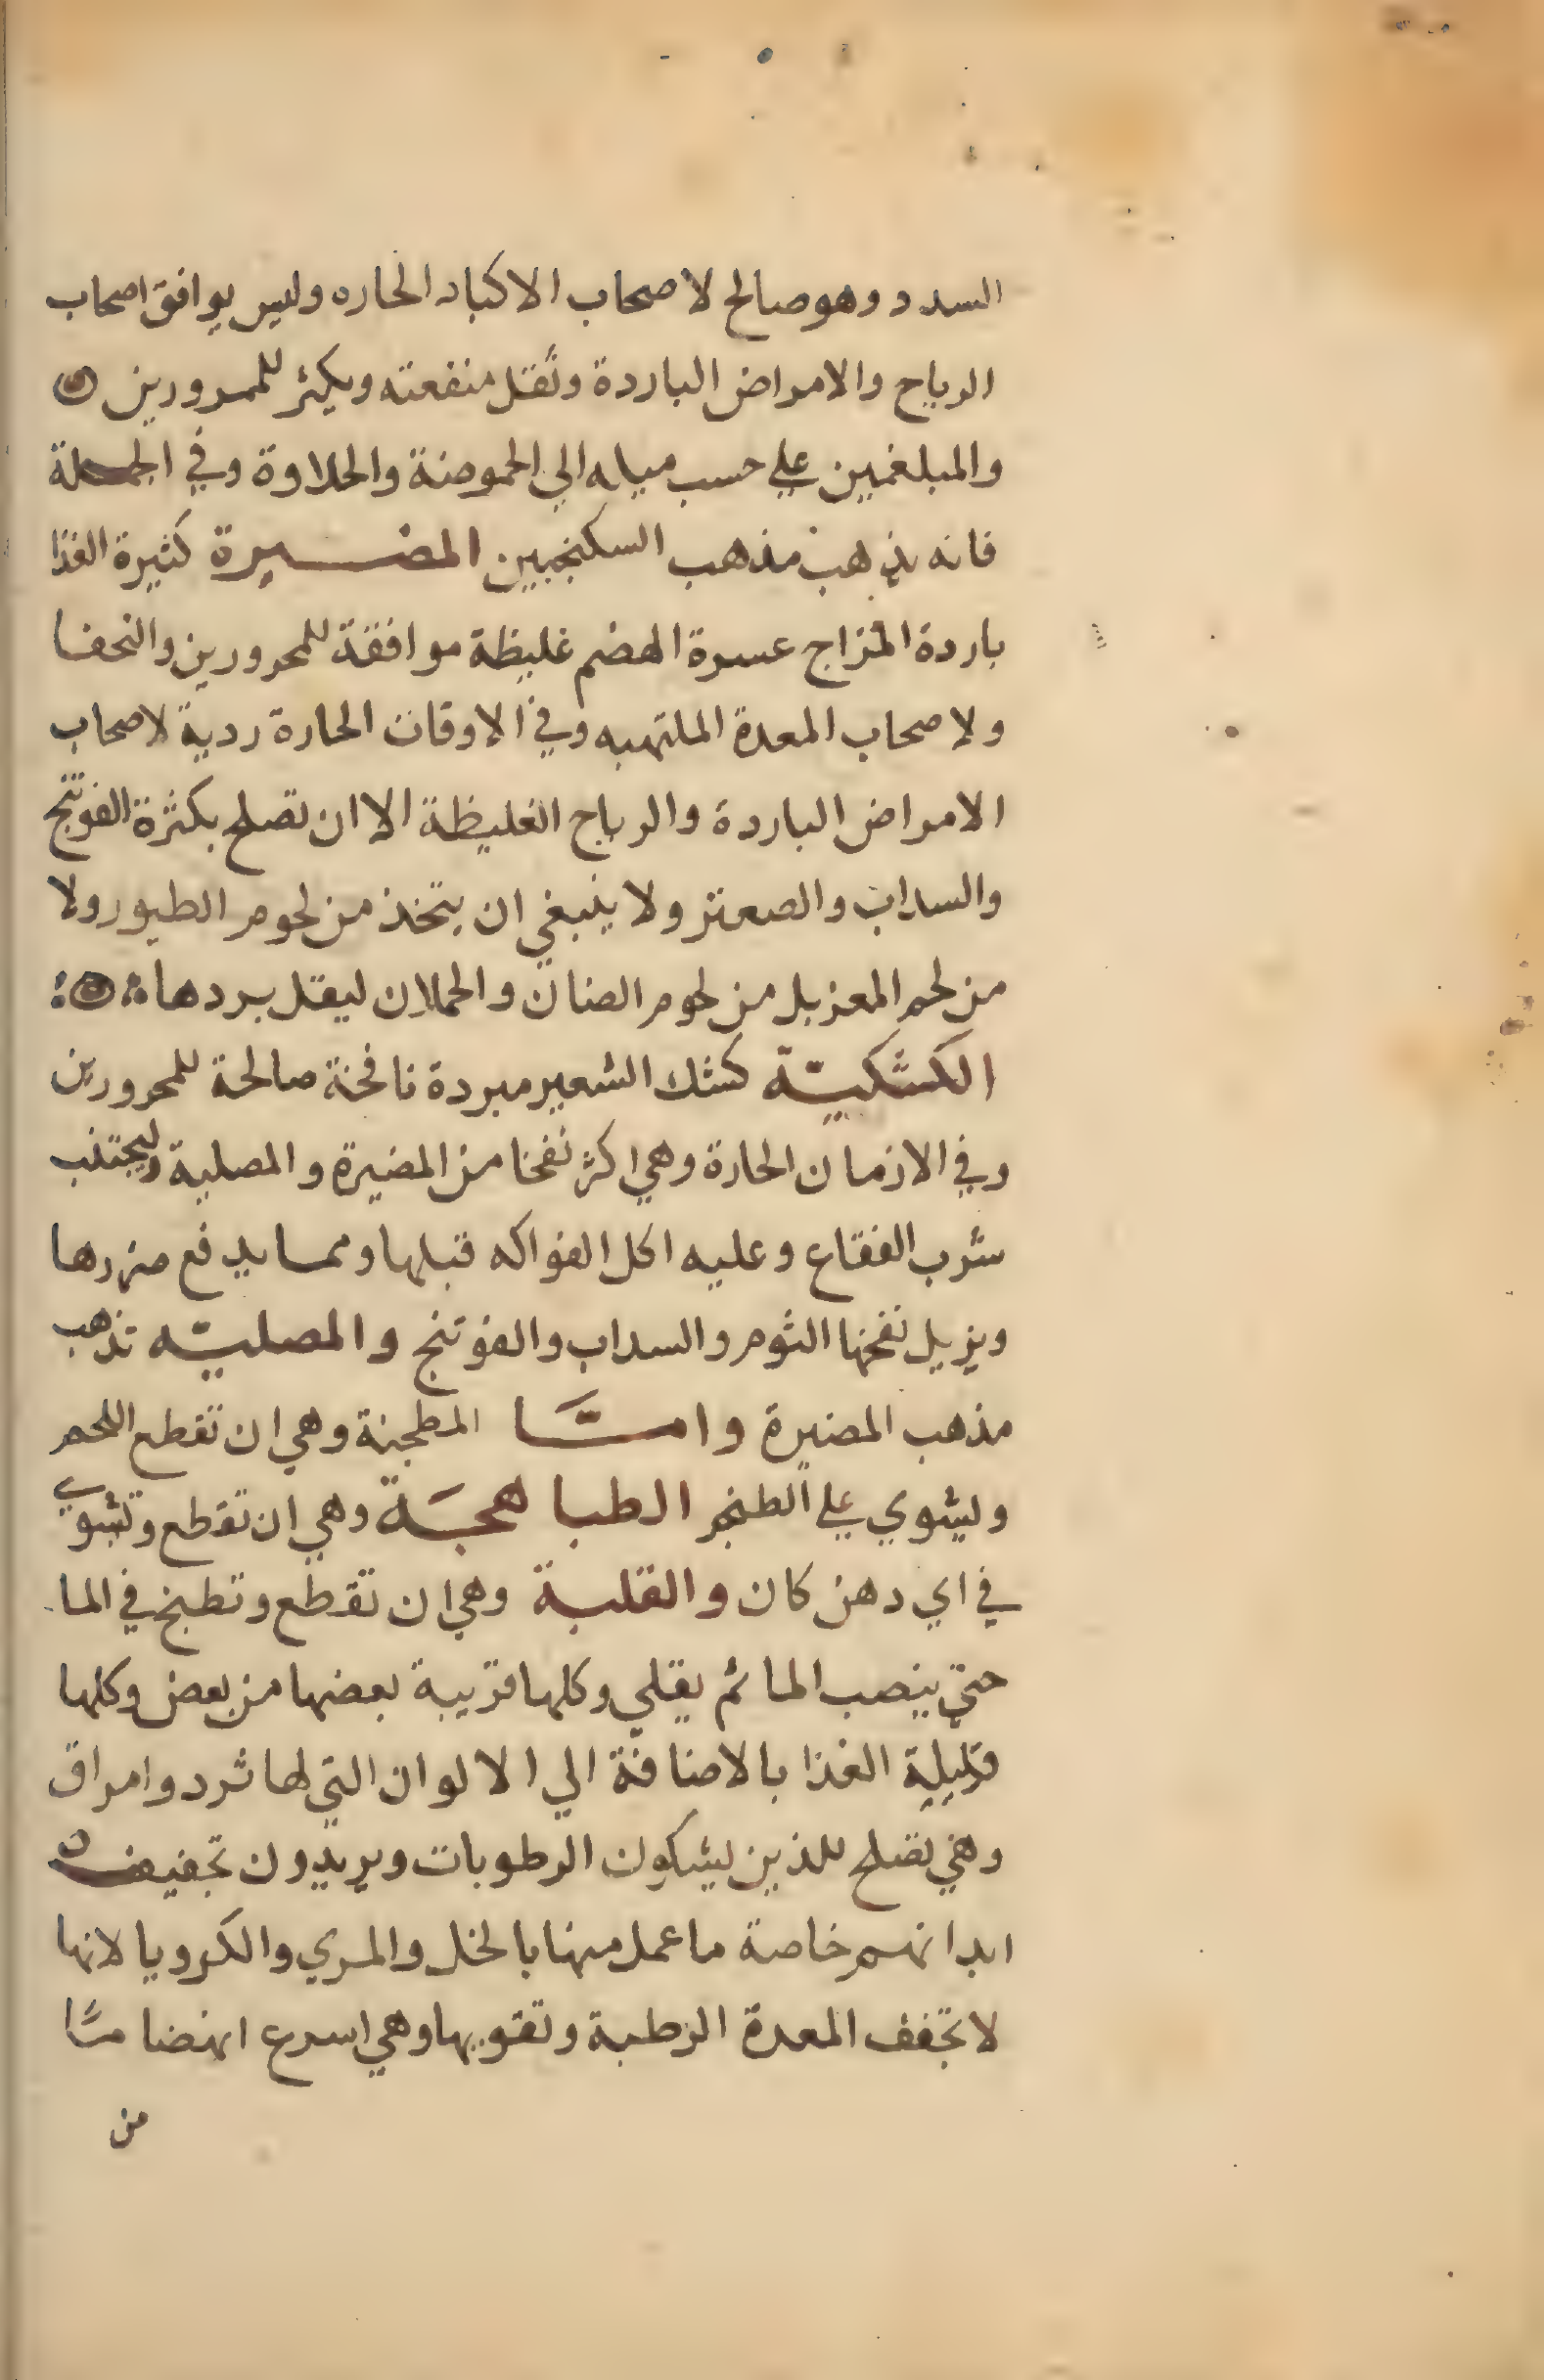 السدد وهو صالح لاصحاب الاكباد الحاره وليس يوافق اصحاب
الرياح والامراض الباردة وتقل منفعته ويكثر للممرورين
والمبلغمين علي حسب ميله الي الحموضة والحلاوة وفي الجملة
فانه يذهب مذهب السكنجبين المضيرة كثيرة الغذا
باردة المزاج عسرة الهضم غليظة موافقة للمحرورين والنحفا
ولاصحاب المعدة الملتهبه وفي الاوقات الحارة ردية لاصحاب
الامراض الباردة والرياح الغليظة الا ان تصلح بكثرة الفوتنج
والسداب والصعتر ولا ينبغي ان يتخذ من لحوم الطيور ولا
من لحم المعز بل من لحوم الضان والحملان ليقل بردها
الكشكيّة كشك الشعير مبردة نافخة صالحة للمحرورين
وفي الازمان الحارة وهي اكثر نفخا من المضيرة والمصلية وليجتنب
شرب الفقاع وعليه اكل الفواكه قبلها ومما يدفع ضررها
ويزيل نفخها الثوم والسداب والفوتنج والمصليّه تذهب
مذهب المضيرة وامّا المطجنة وهي ان تقطع اللحم
وليشوي علي الطنجر الطباهجَة وهي ان تقطع وتشوي
في اي دهن كان والقلية وهي ان تقطع وتطبخ في الما
حتي ينصب الما ثم يقلي وكلها قريبة بعضها من بعض وكلها
قليلة الغذا بالاضافة الي الالوان التي لها ثرد وامراق
وهي تصلح للذين يشكون الرطوبات ويريدون تجفيف
ابدانهم خاصة ما عمل منها بالخل والمري والكرويا لانها
لا تجفف المعدة الرطبة وتقويها وهي اسرع انهضامًا
من